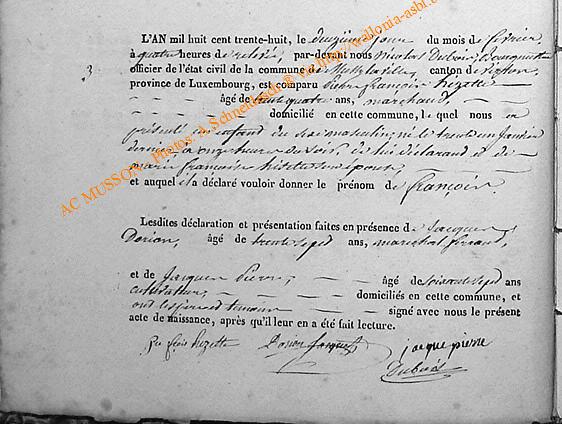 L'AN mil huit cent trente-huit, le deuxième jour du mois de février
à quatre heures de relevée, par-devant nous Nicolas Dubois, Bourgmestre
3. officier de l'état civil de la commune de canton de
province de Luxembourg, est comparu Pierre françois hizette
âgé de trente quatre ans, marchand,
domicilié en cette commune, lequel nous a
présenté un enfant du sexe masculin, né le trente un Janvier
dernier, à onze heures du soir, de lui déclarant et de
marie françoise son épouse,
et auquel il a déclaré vouloir donner le prénom de françois.
Lesdites déclaration et présentation faites en présence de Jacques
Dorion, âgé de trente sept ans, maréchal ferrant,
et de Jacques Pierre, âgé de soixante sept ans
cultivateur, domiciliés en cette commune, et
ont les père et témoins signé avec nous le présent
acte de naissance, après qu'il leur en a été fait lecture.
hizette Dorion Jacques jacque pierre
Dubois
AC MUSSON - Photos: A. Schneidesch @ via http://wallonia-asbl.